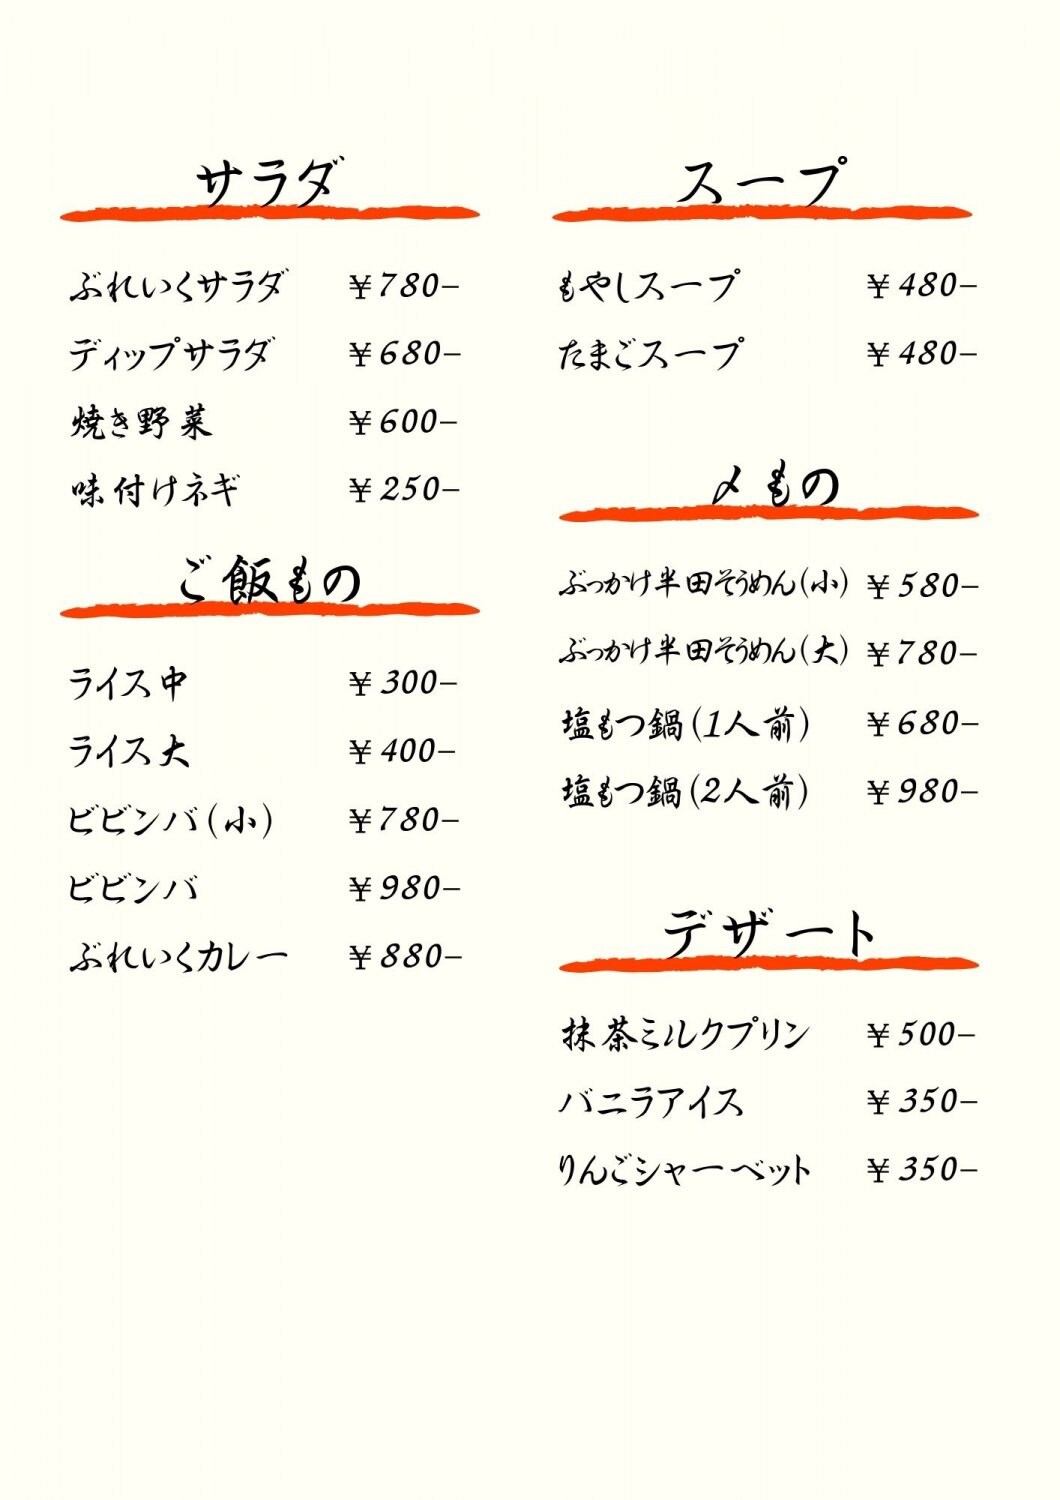 サラダ
ぶれいくサラダ ¥780−
ディップサラダ ¥680−
焼き野菜 ¥600−
味付けネギ ¥250−
ご飯もの
ライス中 ¥300−
ライス大 ¥400−
ビビンバ(小) ¥780−
ビビンバ ¥980−
ぶれいくカレー ¥880−
スープ
もやしスープ ¥480−
たまごスープ ¥480−
〆もの
ぶっかけ半田そうめん(小) ¥580−
ぶっかけ半田そうめん(大) ¥780−
塩もつ鍋(1人前) ¥680−
塩もつ鍋(2人前) ¥980−
デザート
抹茶ミルクプリン ¥500−
バニラアイス ¥350−
りんごシャーベット ¥350−